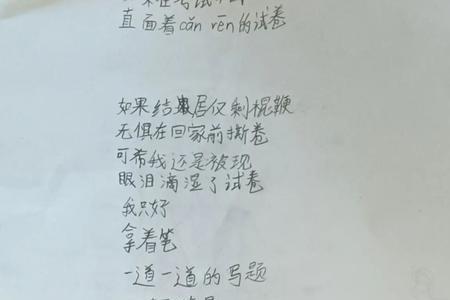 在考试
直面着cǎn rēn的试卷
如果结局仅剩棍鞭
无惧在回家前撕卷
可希我还是被现
眼泪滴湿了试卷
我只好
拿着笔
一道一道的写题